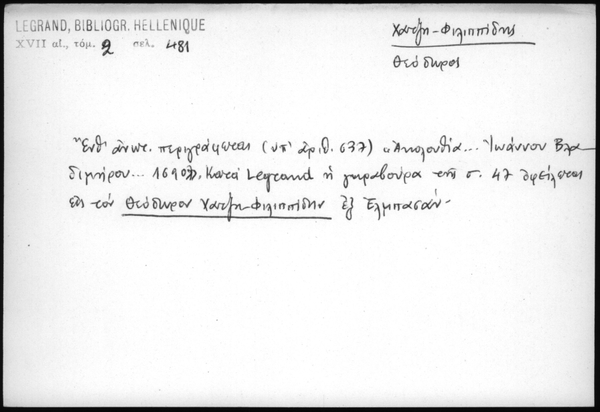 LEGRAND, BIBLIOGR. HELLENIQUE
XVII αἰ., τόμ. 2 σελ. 481
Χατζη-Φιλιππίδης
Θεόδωρος
Ἔνθ' ἀνωτ. περιγράφεται (ὑπ' ἀριθ. 637) "Ἀκολουθία... Ἰωάννου Βλα
διμήρου... 1690". Κατά Legrand ἡ γκραβούρα τῆς σ. 47 ὀφείλεται
εἰς τόν Θεόδωρον Χατζη-Φιλιππίδην ἐξ Ἐλμπασάν.